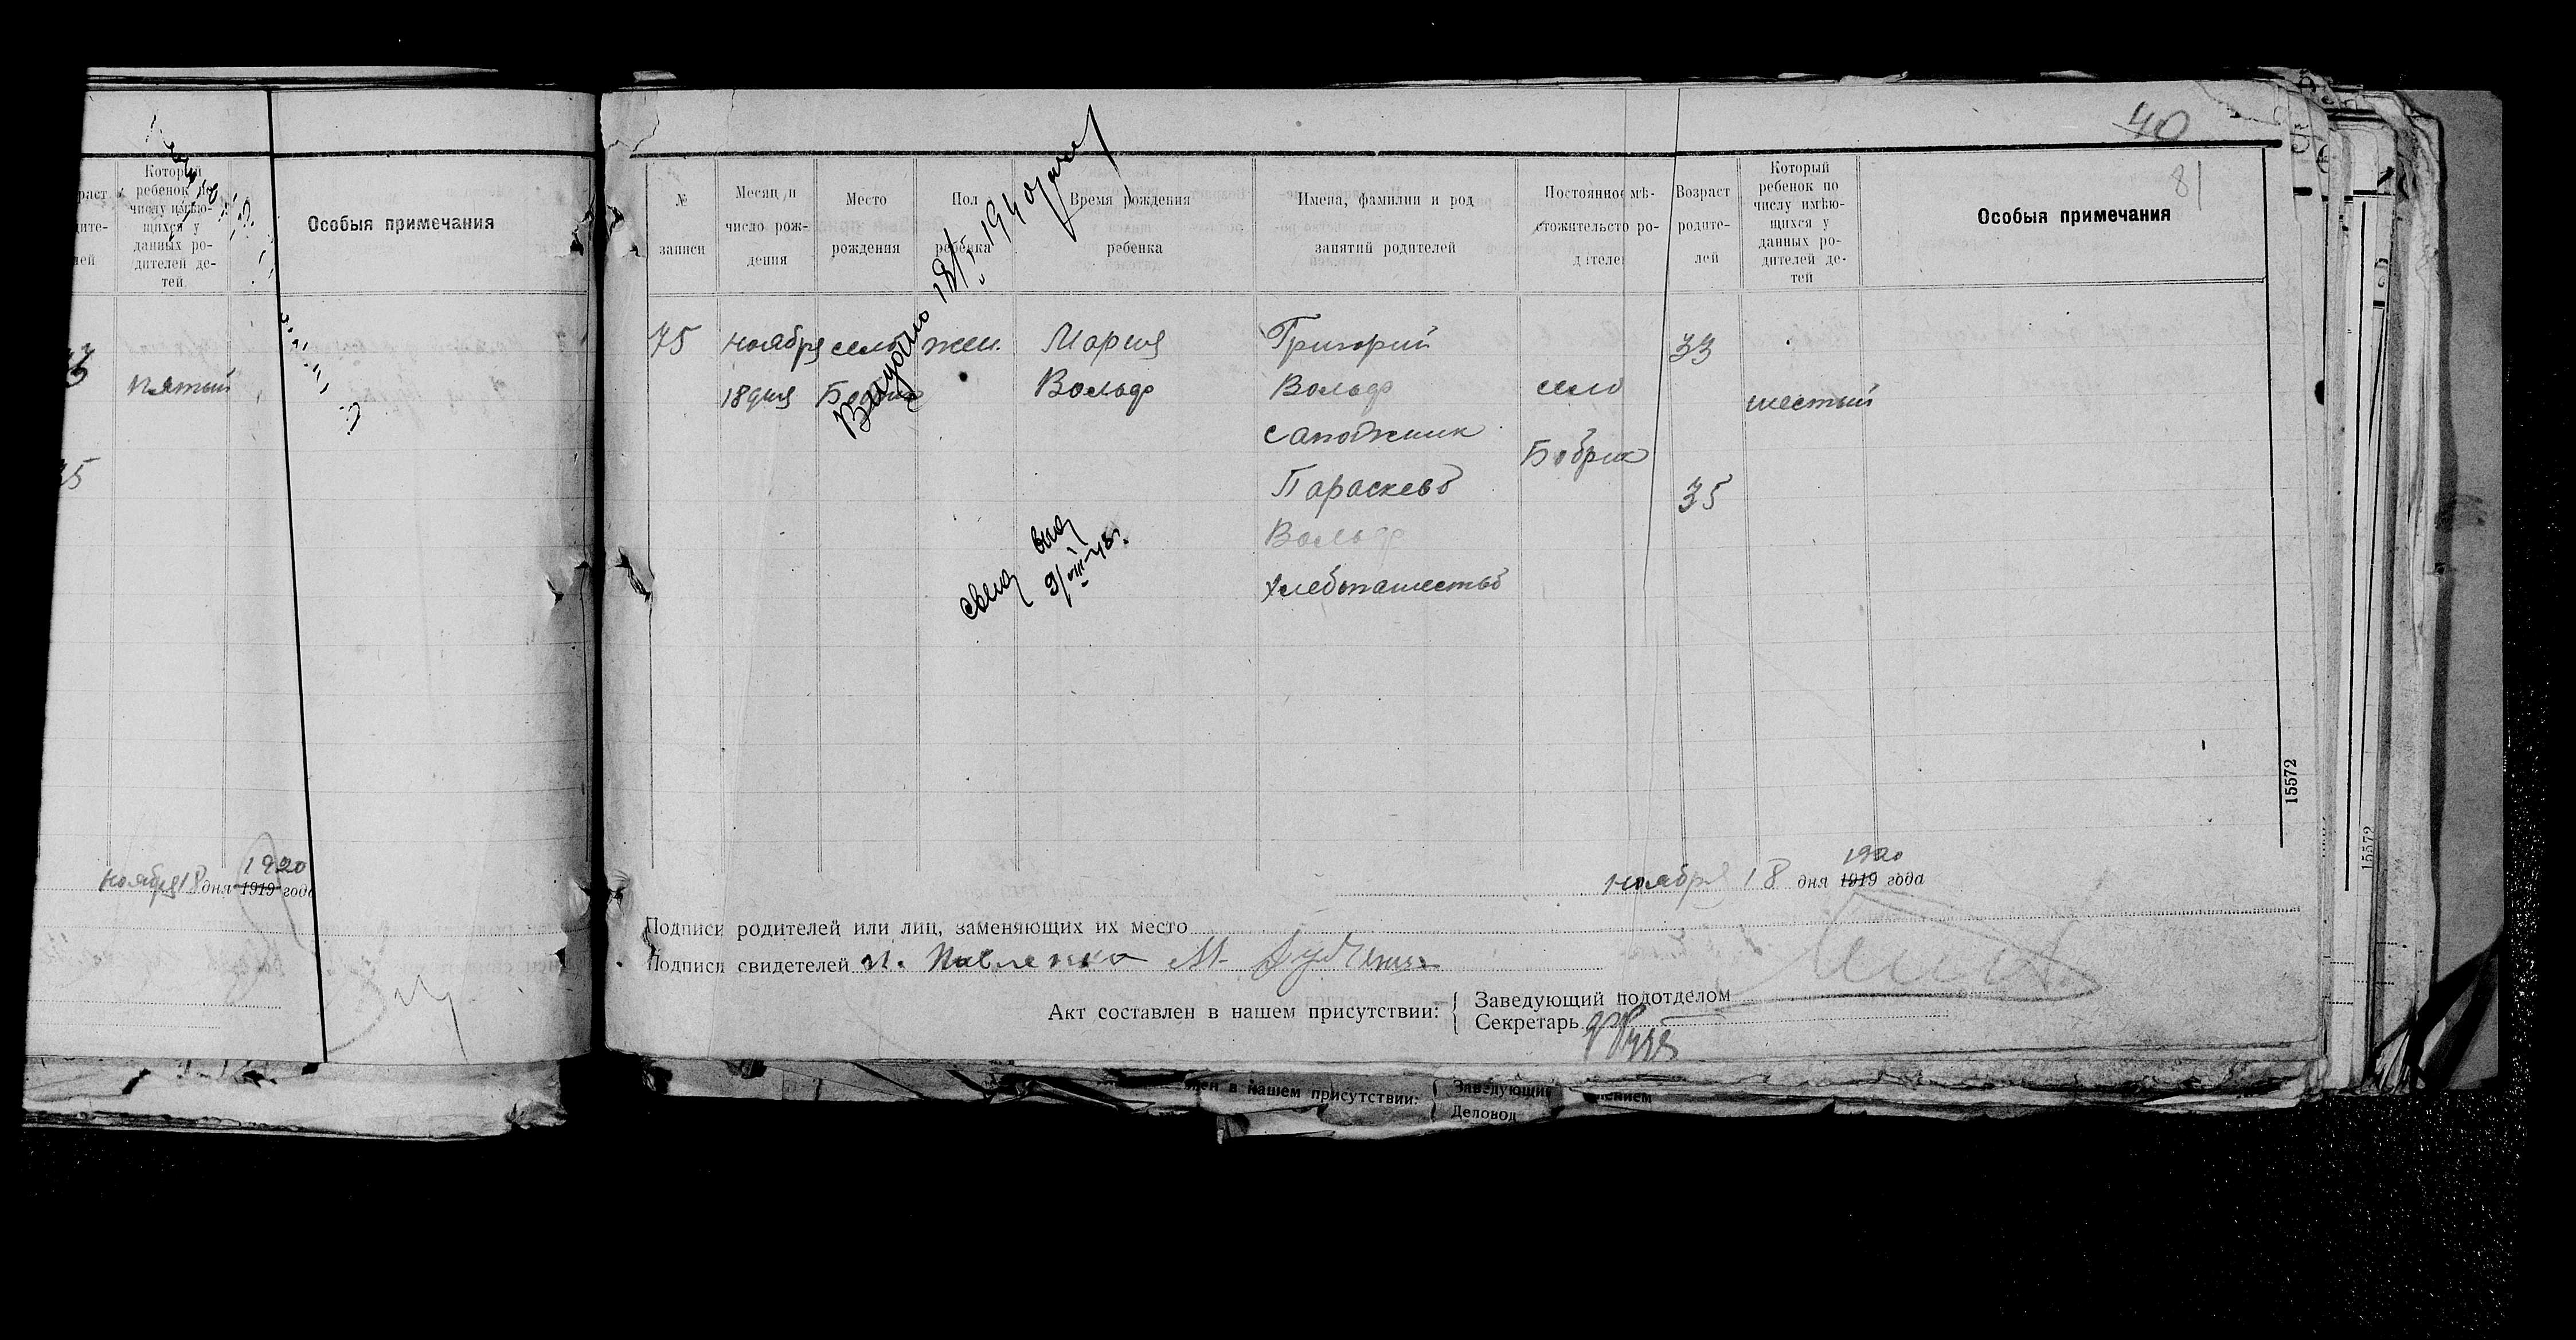 раст
дите-
лей
Который
ребенок по
числу имѣю-
щихся у
данных ро-
дителей де-
тей
Особыя примечания
пятый
35
ноября 18 дня 1920
1919 года
40
81
№
записи
Месяц и
число рож-
дения
Место
рождения
Пол
ребенка
Время рождения
ребенка
Имена, фамилии и род
занятий родителей
Постоянное мѣ-
стожительсто ро-
дителей
Возраст
родите-
лей
Который
ребенок по
числу имѣю-
щихся у
данных ро-
дителей де-
тей
Особыя примечания
75
ноября
18 дня
село
жен.
Мария
Вольф
Григорий
Вольф
сапожник
Параскева
Вольф
хлебопашество
село
Бобрик
33
35
шестый
Выдано 18/V 1940
свид выд
9/VIII-48г.
ноября 18 дня 1919 года
1920
Подписи родителей или лиц, заменяющих их место
Подписи свидетелей И. Павленко М.
Акт составлен в нашем присутствии:
Заведующий подотделом
Секретарь
15572
15572
в нашем присутствии:
Заведующий
Деловод